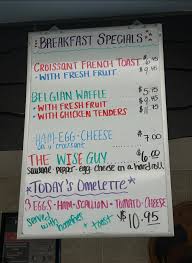 BREAKFAST SPECIALS
CROISSANT FRENCH TOAST
- WITH FRESH FRUIT
BELGIAN WAFFLE
- WITH FRESH FRUIT
- WITH CHICKEN TENDERS
HAM-EGG-CHEESE $7.00
on a croissant
THE WISE GUY $6.00
Sausage-pepper-egg-cheese on a hard roll
*TODAY'S OMELETTE*
3 EGGS-HAM-SCALLION-TOMATO-CHEESE
served with homefries + toast $10.95